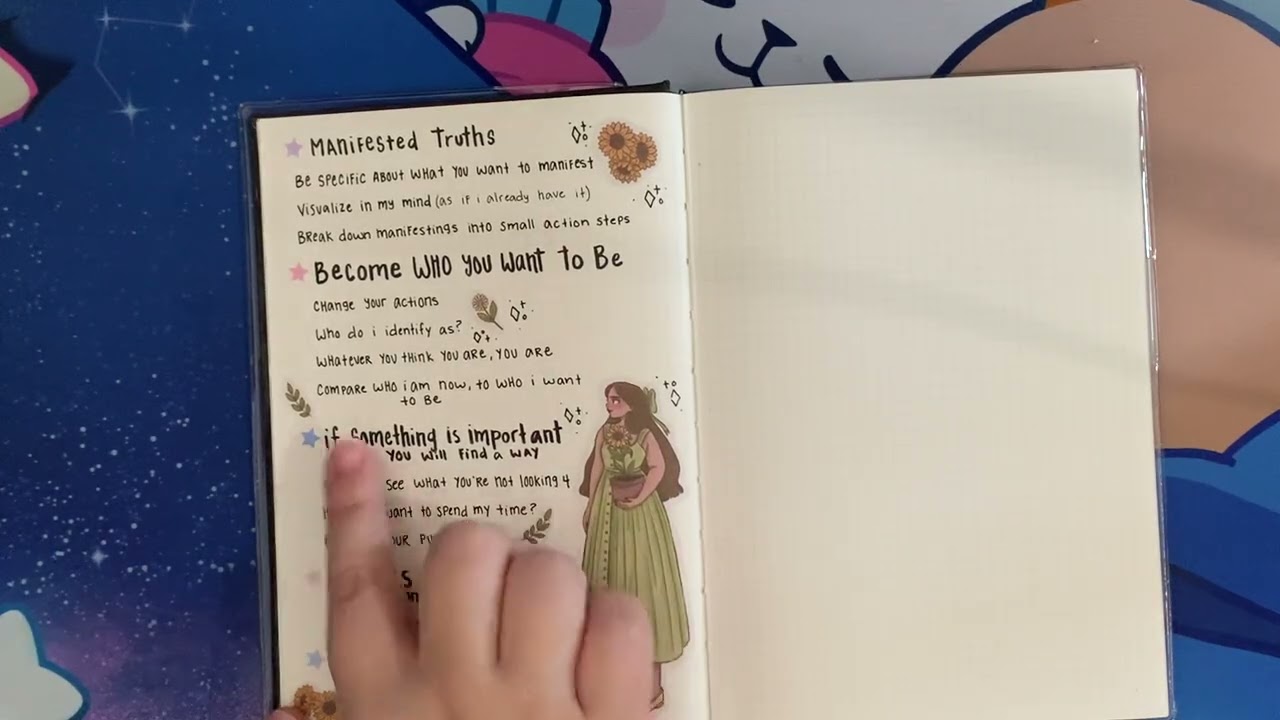 MANiFESTED TRUTHS
BE SPECIFIC ABOUT WHAT YOU WANT TO MANIFEST
VISUALIZE in my MIND (as if i already have it)
BREAK down manifestings into small action steps
BECOME WHO YOU WANT TO BE
CHANGE YOUR ACTIONS
WHO do i identify as?
WHATEVER YOU THINK YOU ARE, YOU ARE
COMPARE WHO i am now, to WHO i want
to BE
if something is important
YOU WILL FIND A WAY
SEE WHAT YOU'RE NOT LOOKING 4
to SPEND my time?